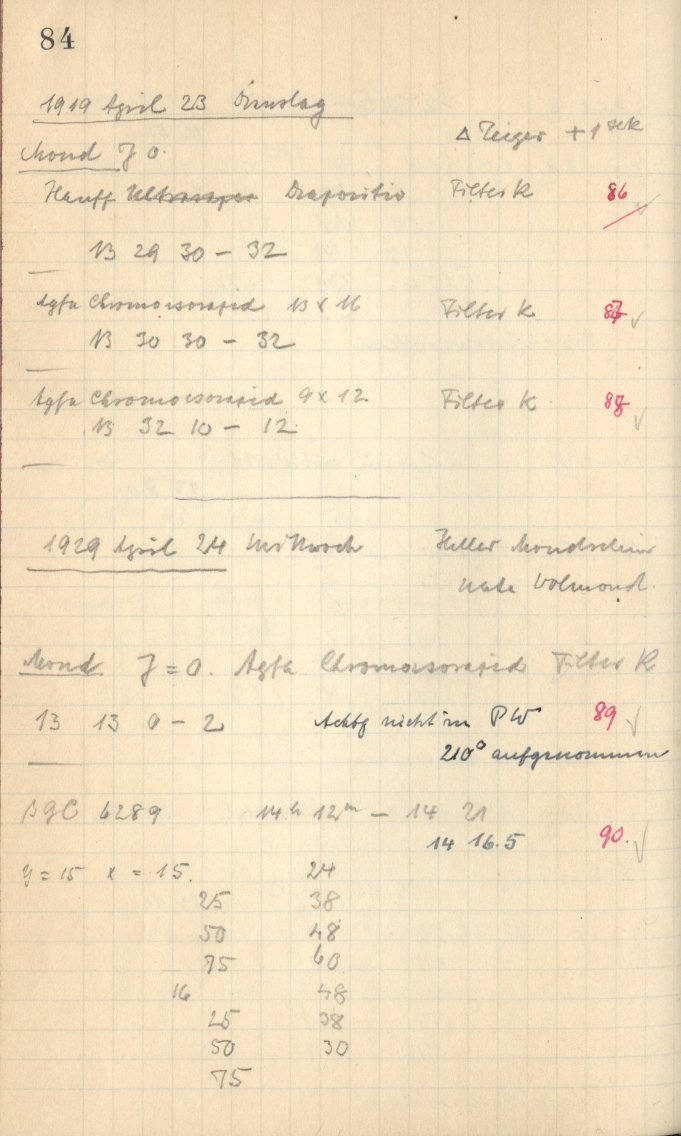 84
1919 April 23 Dienstag
Δ Zeiger + 1 sek
Mond J 0.
Hauff Ultrarapid Diapositiv Filter K 86
13 29 30 - 32
Agfa Chromoisorapid 13 x 16 Filter K 87
13 30 30 - 32
Agfa Chromoisorapid 9 x 12 Filter K 88
13 32 10 - 12
1929 April 24 Mittwoch Heller Mondschein
nahe Volmond.
Mond J = 0. Agfa Chromoisorapid Filter K
13 13 0 - 2 Achtg nicht in PW 89
210° aufgenommen
BGC 6289 14 h 12 m - 14 21
14 16.5 90.
y = 15 x = 15. 24
25 38
50 48
75 60
16 48
25 38
50 30
75